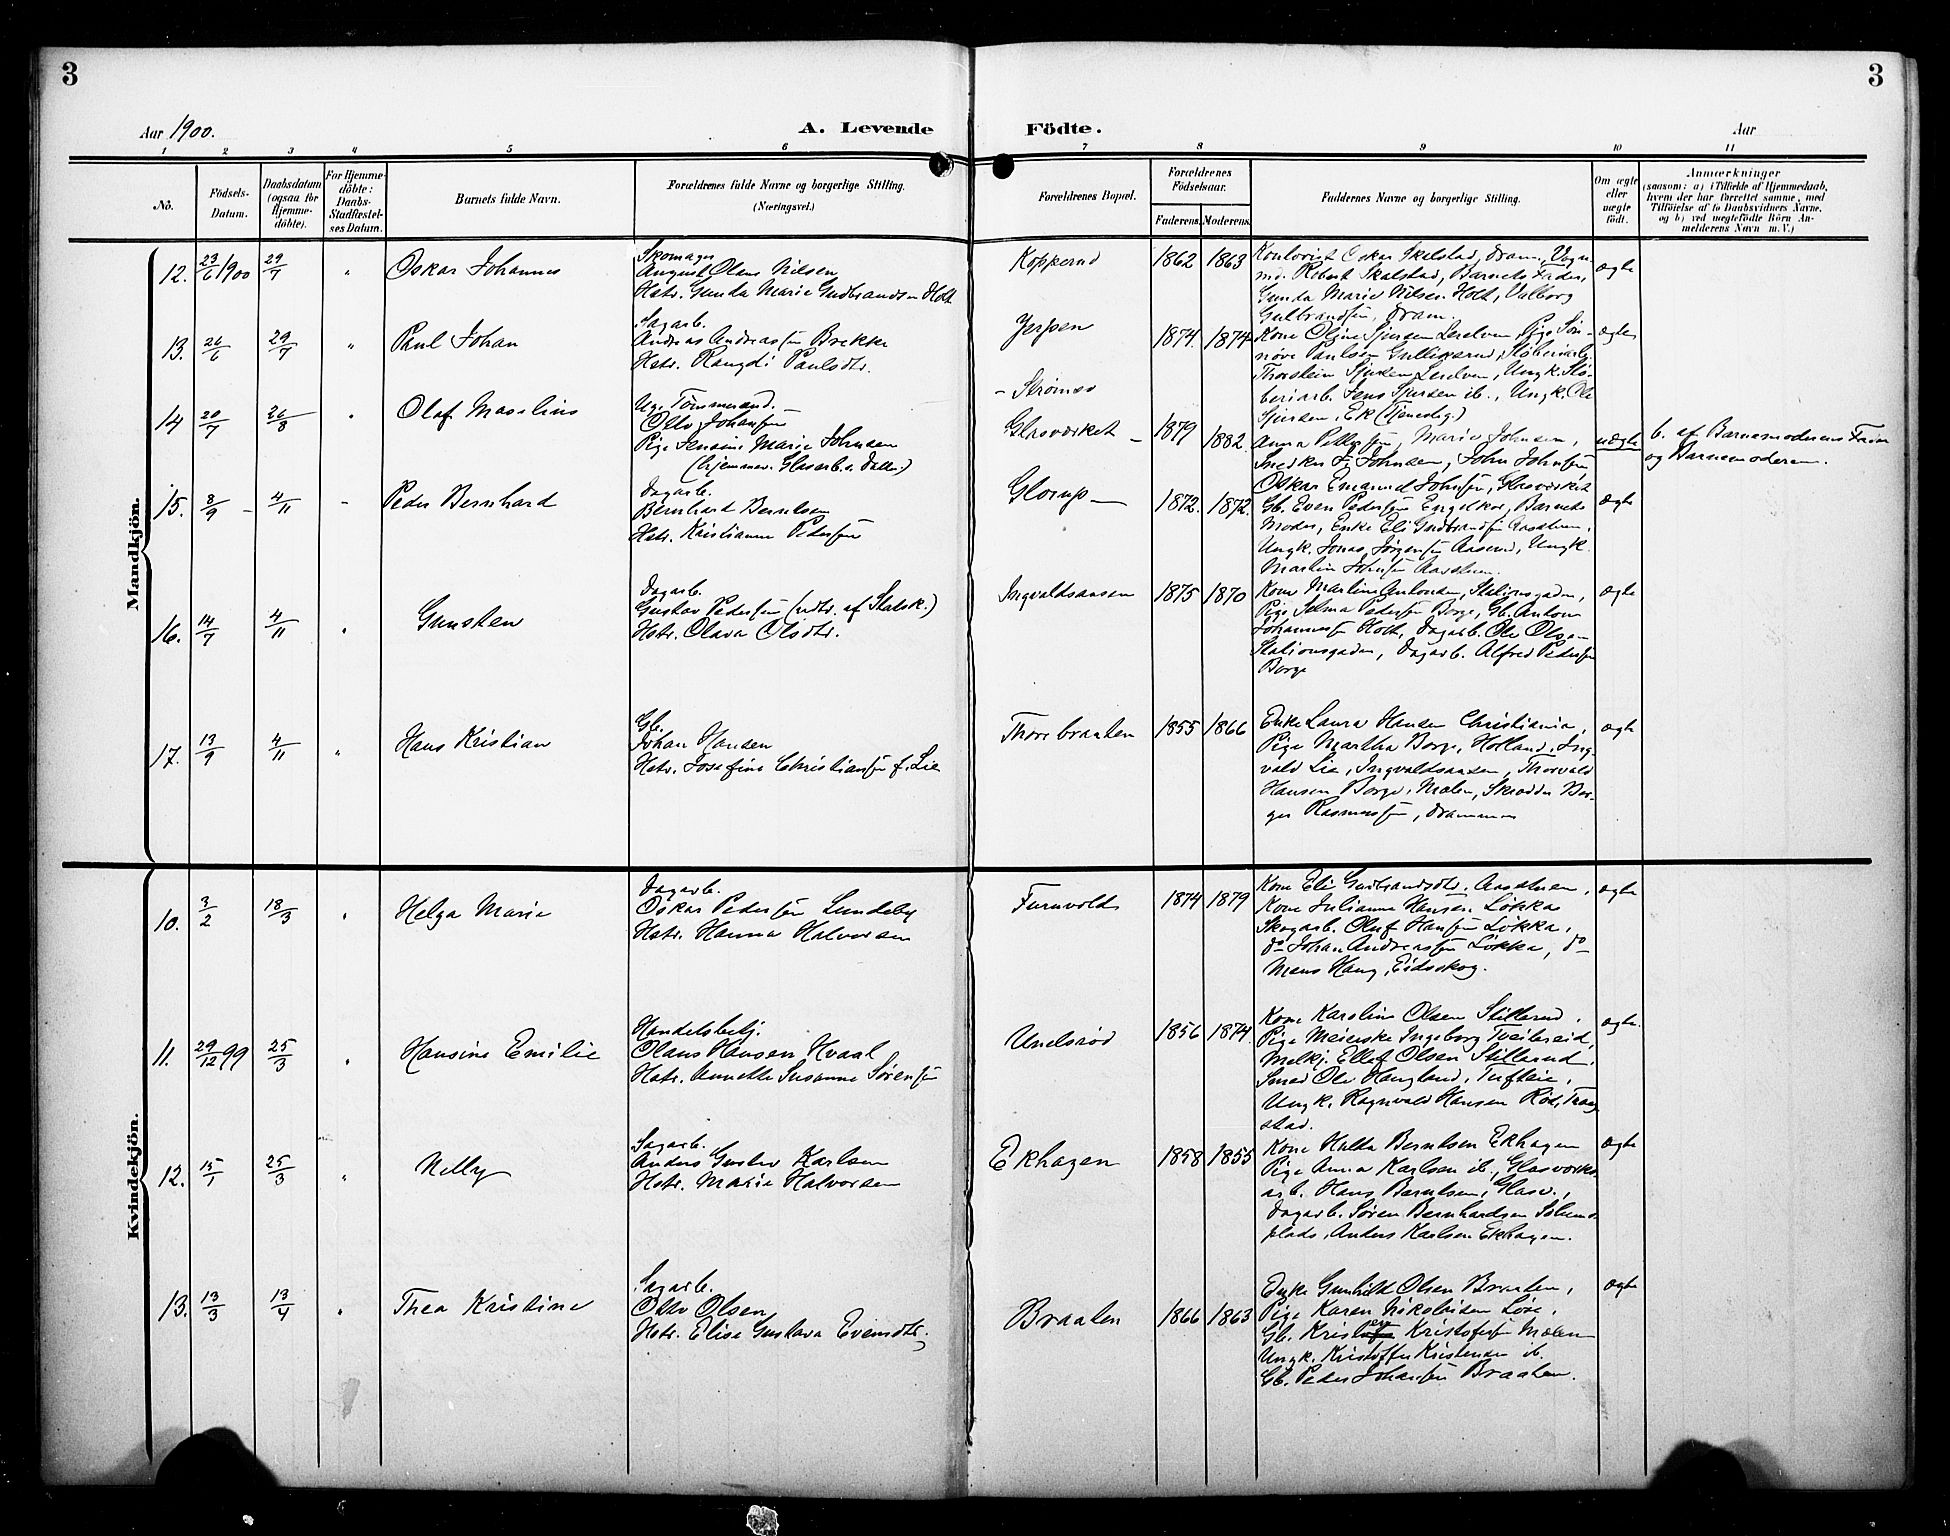 3
3
Aar 1900.
A. Levende
Födte.
Aar
1 2 3 4 5 6 7 8 9 10 11
No.
Födsels-
Datum.
Daabsdatum
(ogsaa for
Hjemme-
döbte).
For Hjemme-
döbte:
Daabs-
Stadfæstel-
ses Datum.
Barnets fulde Navn.
Forældrenes fulde Navne og borgerlige Stilling.
(Næringsvei.)
Forældrenes Bopæl.
Forældrenes
Födselsaar.
Faderens. Moderens.
Faddernes Navne og borgerlige Stilling.
Om ægte
eller
uægte
födt.
Anmærkninger
(saasom: a) i Tilfælde af Hjemmedaab,
hvem der har forrettet samme, med
Tilföielse af to Daabsvidners Navne,
og b) ved uegtefödte Börn An-
melderens Navn m. V.)
Mandkjön.
12. 23/6 1900 29/7 " Oskar Johannes
Skomager
August Olaus Nilsen
Hstr. Gunda Marie Gudbrandsen Holt
Kopperud 1862 1863
Oskar Skalstad, Dram.,
Robert Skalstad, Barnets Fader,
Gunda Marie Nilsen Holt, Valborg
Gulbrandsen, Dram.
ægte
13. 26/6 29/7 " Paul Johan
Sagarb.
Andreas Andreassen Brekke
Hstr. Rangdi Paulsdtr.
Jerpen
- Strømsø
1874. 1874
Kone Oline Sjursen Lerelven, Pige Søn-
nøve Paulsen Gullikerud, Støberiarb.
Thorstein Sjursen Lerelven, Ungk. Stø-
beriarb. Jens Sjursen ib., Ungk. Ole
Sjursen, Ek (Tjenestg.)
ægte
14 20/7 26/8 " Olaf Maselius
Ug. Tømmermd.
Otto Johansen
Pige Jensine Marie Johnsen
(hjemmev. Glasarb.s Datter)
Glasværket 1879 1882
Anna Pettersen, Marie Johnsen,
Snedker Fr. Johnsen, John Johnsen
Oskar Emanuel Johnsen, Glasværket
uægte
b. af Barnemoderens Fader
og Barnemoderen.
15. 8/9 4/11 - Peder Bernhard
Dagarb.
Bernhard Berntsen
Hstr. Kristianne Pedersen
Glorup 1872. 1872.
Gb. Even Pedersen Engelkor, Barnets
Moder, Enke Eli Gudbrandsen Aasstuen,
Ungk. Jonas Jørgensen Aaserud, Ungk.
Martin Johnsen Aasstuen.
ægte
16. 14/7 4/11 " Gunsten
Dagarb.
Gustav Pedersen (udtr. af Statsk.)
Hstr. Olava Olsdtr.
Ingvaldsaasen 1875 1870
Kone Martine Antonsen, Stationsgaden,
Pige Selma Pedersen Borge, Gb. Anton
Johannesen Holt, Dagarb. Ole Olsen
Stationsgaden, Dagarb. Alfred Pedersen
Borge
ægte
17. 13/9 4/11 " Hans Kristian
Gb.
Johan Hansen
Hstr. Josefine Christiansen f. Lie
Thorebraaten 1855 1866
Enke Laura Hansen Christiania,
Pige Martha Borge, Hotland, Ing-
vald Lie, Ingvaldsaasen, Thorvald
Hansen Borge, Mælen, Skrædder Bir-
ger Rasmussen, Drammen
ægte
Kvindekjön.
10. 3/2 18/3 " Helga Marie
Dagarb.
Oskar Pedersen Lundeby
Hstr. Hanna Halvorsen
Furuvold 1874 1879
Kone Eli Gudbrandsdtr. Aasstuen,
Kone Julianne Hansen Løkka
Skogarb. Oluf Hansen Løkka,
do Johan Andreassen Løkka, do
Mons Haug, Eidsskog.
ægte
11. 29/12 99 25/3 " Hansine Emilie
Handelsbetj.
Olaus Hansen Hvaal
Hstr. Annette Susanne Sørensen
Unelsrød 1856 1874.
Kone Karoline Olsen Stillerud,
Pige Meierske Ingeborg Tveitereid,
Melkj. Ellef Olsen Stillerud,
Smed Ole Haugland, Tufteie,
Ungk. Ragnvald Hansen Rød, Trøg-
stad.
ægte.
12. 15/1 25/3 " Nelly
Sagarb.
Anders Gustav Karlsen
Hstr. Marie Halvorsen
Ekhagen 1858 1855
Kone Hulda Berntsen Ekhagen
Pige Anna Karlsen ib., Glasværks-
arb. Hans Berntsen, Glasv.,
Dagarb. Søren Bernhardsen Solums-
plads, Anders Karlsen Ekhagen.
ægte
13. 13/3 13/4 " Thea Kristine
Sagarb.
Otto Olsen
Hstr. Elise Gustava Evensdtr.
Braaten 1866 1863
Enke Gunhild Olsen Braaten,
Pige Karen Nikolaisen Løse,
Gb. Kristen Kristofersen Mælen
Ungk. Kristoffer Kristensen ib.
Gb. Peder Johansen Braaten.
ægte